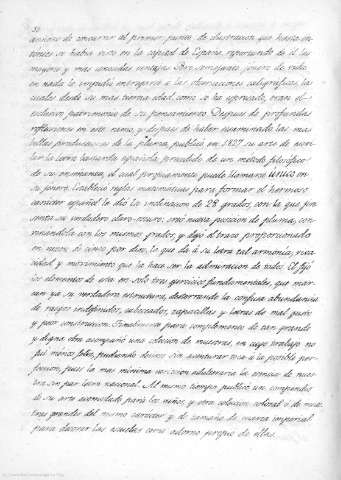 32
ansioso de concurrir al primer punto de ilustracion que hasta en-
tonces se habia visto en la capital de España, reportando de él las
mayores y mas conocidas ventajas. Pero semejante género de vida
en nada le impidió entregarse á las observaciones caligráficas, las
cuales desde su mas tierna edad, como se ha espresado, eran el es-
clusivo patrimonio de su pensamiento. Despues de profundas
reflexiones en este ramo, y despues de haber examinado las mas
bellas producciones de la pluma, publicó en 1827 su arte de escri-
bir la letra bastarda española, precedido de un metodo filosófico
de su enseñanza, el cual propiamente puede llamarse único en
su género. Establece reglas matemáticas para formar el hermoso
carácter español: le dió la inclinacion de 28 grados, con la que pre-
senta su verdadero claro-oscuro: creó nueva posicion de pluma, con-
cordándola con los mismos grados, y dejó el trazo proporcionado
en razon de cinco por dos, lo que dá á su letra tal armonía,
y movimiento que la hace ser la admiracion de todos. El fijó
los elementos de esta en solo tres ejercicios fundamentales, que mar-
can ya su verdadera estructura, desterrando la confusa abundancia
de rasgos indefinidos, cabeceados, zapatillas y letras de mal gusto
y peor construccion. Finalmente para complemento de tan grande
y digna obra acompañó una coleccion de muestras, en cuyo trabajo no
fué menos feliz, pudiendo decirse sin aventurar que á la posible per-
feccion, pues la mas mínima variacion adulteraria la esencia de nues-
tra sin par letra nacional. Al mismo tiempo publicó un compendio
de su arte acomodado para los niños, y otra coleccion colosal ó de mues-
tras grandes del mismo carácter y de tamaño de marca imperial
para decorar las escuelas como adorno propio de ellas.